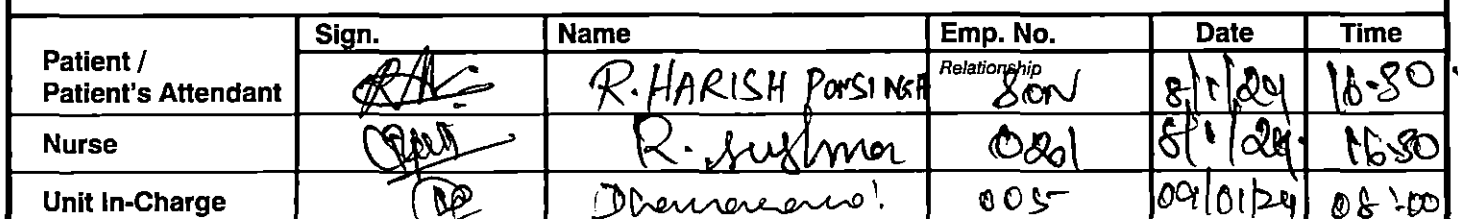 Sign. Name Emp. No. Date Time
Patient / Patient's Attendant R. HARISH Relationship SON 8/1/24 16.30
Nurse R. Sushma 8/1/24. 16.30
Unit In-Charge 005 09/01/24 08:00